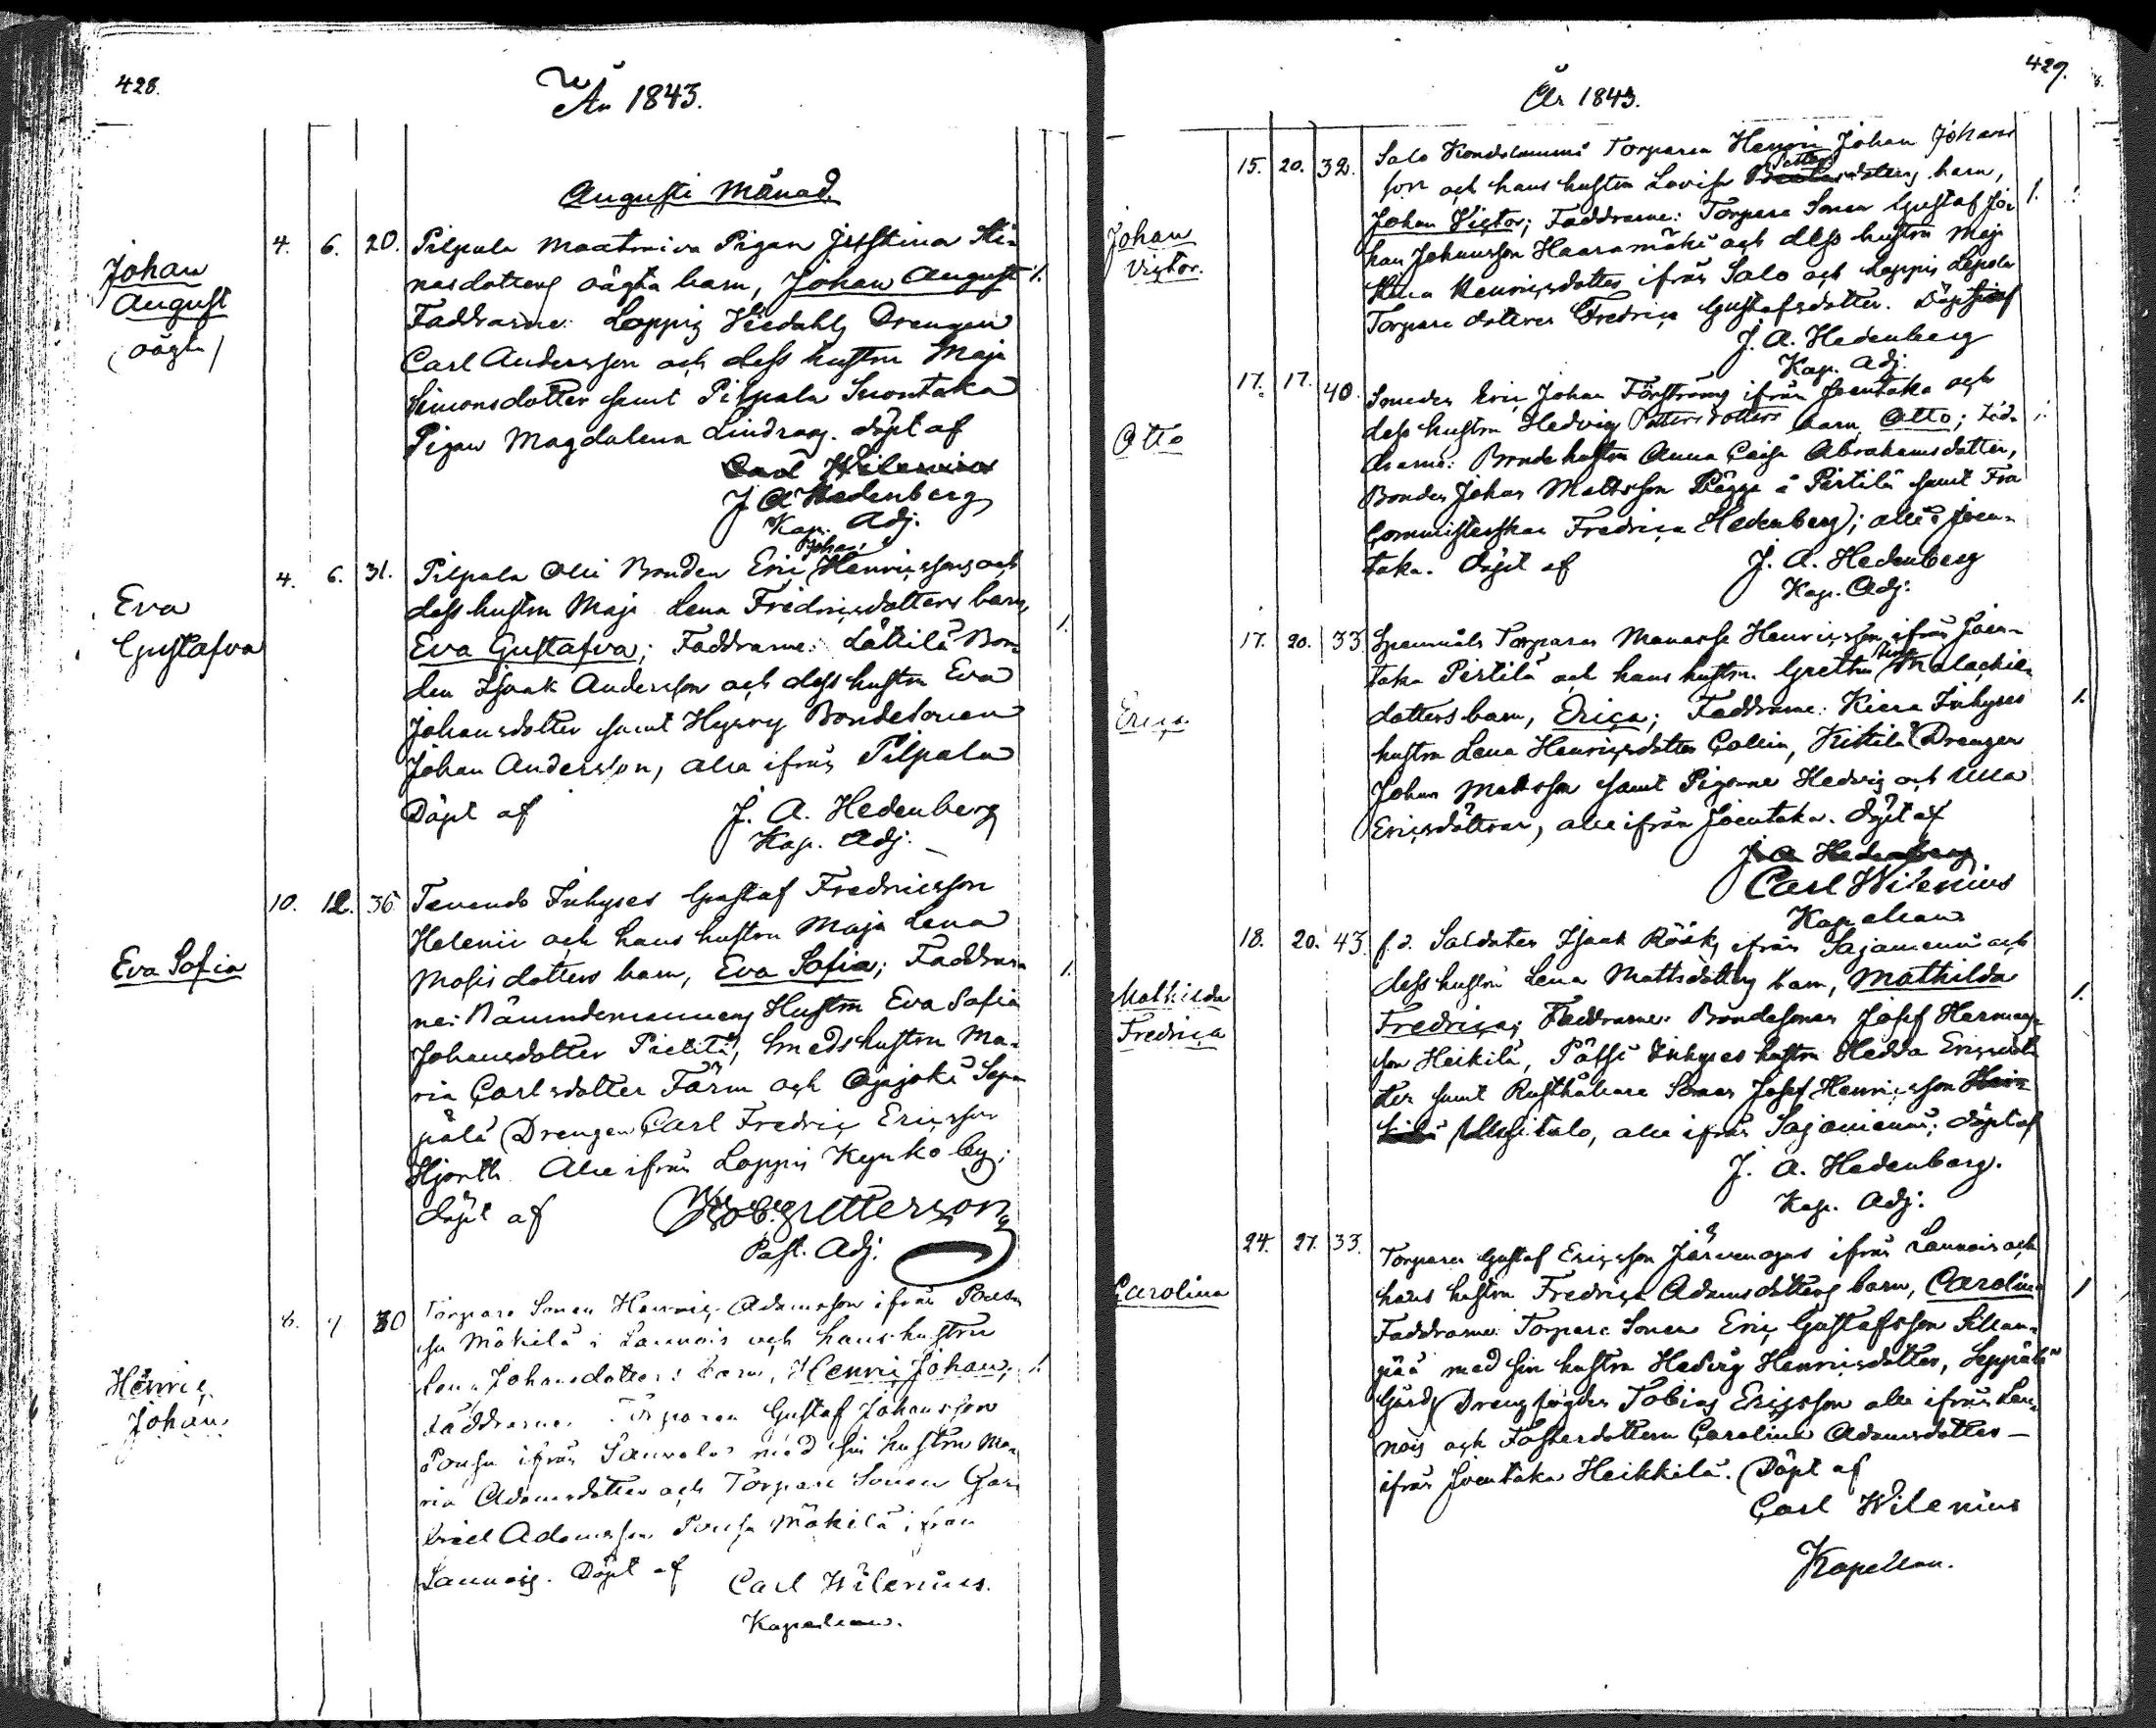 428.
År 1843.
Augusti Månad.
Johan
August
(oägta)
4. 6. 20. Pilpala Maatmiva Pigan Justina Sti-
nasdotters oägta barn, Johan August 1.
Faddrarne: Loppis Drengen
Carl Andersson och dess hustru Maja
Simonsdotter samt Pilpala Suontaka
Pigan Magdalena Lindroos. döpt af
Carl Wilenius
J. A. Hedenberg
Kap. Adj.
Eva
Gustafva
Johan
4. 6. 31. Pilpala Olli Bonden Eric Henricssons och
dess hustru Maja Lena Fredricsdotters barn,
Eva Gustafva; Faddrarne: Lättilä Bon- 1.
den Isaak Andersson och dess hustru Eva
Johansdotter samt Hyrsy Bondesonen
Johan Andersson, alla ifrån Pilpala
Döpt af J. A. Hedenberg
Kap. Adj.
Eva Sofia
10. 12. 36. Tenendo Inhyses Gustaf Fredricsson
Helenii och hans hustru Maja Lena
Mosisdotters barn, Eva Sofia; Faddrar- 1.
ne: Nämndemannens Hustru Eva Sofia
Johansdotter Pietilä, Smedshustru Ma-
ria Carlsdotter Färm och Ojajoki Sep-
pälä Drengen Carl Fredric Ericsson
Hjorth. Alla ifrån Loppis Kynko by;
döpt af
Past. Adj.
Henric
Johan
8. 9 30 Torpare Sonen Henric Adamsson ifrån Pousa
Mäkilä i Launois och hans hustru
Lena Johansdotters barn, Henric Johan; 1.
Faddrarne: Torparen Gustaf Johansson
Pousa ifrån Sauvala med sin hustru Ma-
ria Adamsdotter och Torpare Sonen Gab-
riel Adamsson Pousa Mäkilä ifrån
Launois. Döpt af Carl Wilenius.
Kapellan.
429.
År 1843.
Johan
Victor.
15. 20. 32. Salo Torparen Henric Johan Johans-
son och hans hustru Lovisa barn,
Johan Victor; Faddrarne: Torpare Sonen Gustaf Jo- 1.
han Johansson Haaramäki och dess hustru Maja
Stina Henricsdotter ifrån Salo och Loppis
Torpare dotren Fredrica Gustafsdotter. Döpt af
J. A. Hedenberg
Kap. Adj.
Otto
17. 17. 40. Smeden Eric Johan Förström ifrån Joentaka och
dess hustru Hedvig Pettersdotters barn, Otto; Fad- 1.
drarne: Bonde hustru Anna Caisa Abrahamsdotter,
Bonden Johan Mattsson Pägge å Pirtilä samt Fru
Comministerskan Fredrica Hedenberg; alla i Joen-
taka. döpt af J. A. Hedenberg
Kap. Adj.
Erica
17. 20. 33 Spannmåls Torparen Manasse Henricsson ifrån Joen-
taka Pirtilä och hans hustru Greta Stina Malachie-
dotters barn, Erica; Faddrarne: Kiera Inhyses 1.
hustru Lena Henricsdotter Collin, Kittilä Drengen
Johan Mattsson samt Pigorne Hedvig och Ulla
Ericsdöttrar, alla ifrån Joentaka. döpt af
J. A. Hedenberg
Carl Wilenius
Kapellan
Mathilda
Fredrica
18. 20. 43 f.d. Soldaten Isaak Rööks ifrån Sajaniemi och
dess hustru Lena Mattsdotters barn, Mathilda 1.
Fredrica; Faddrarne: Bondesonen Josef Hermans-
son Heikilä, Pässi Inhyses hustru Hedda Ericsdot-
ter samt Rusthållare Sonen Josef Henricsson Hei-
kilä Uusitalo, alla ifrån Sajaniemi; döpt af
J. A. Hedenberg.
Kap. Adj.
Carolina
24. 27. 33. Torparen Gustaf Ericsson Järvenojas ifrån Launois och
hans hustru Fredrica Adamsdotters barn, Carolina 1
Faddrarne Torpare Sonen Eric Gustafsson Sillan-
pää med sin hustru Hedvig Henricsdotter, Seppälä
Gårds Drengfogden Tobias Ericsson alla ifrån Lau-
nois och Fosterdottern Carolina Adamsdotter
ifrån Joentaka Heikkilä. Döpt af
Carl Wilenius
Kapellan.